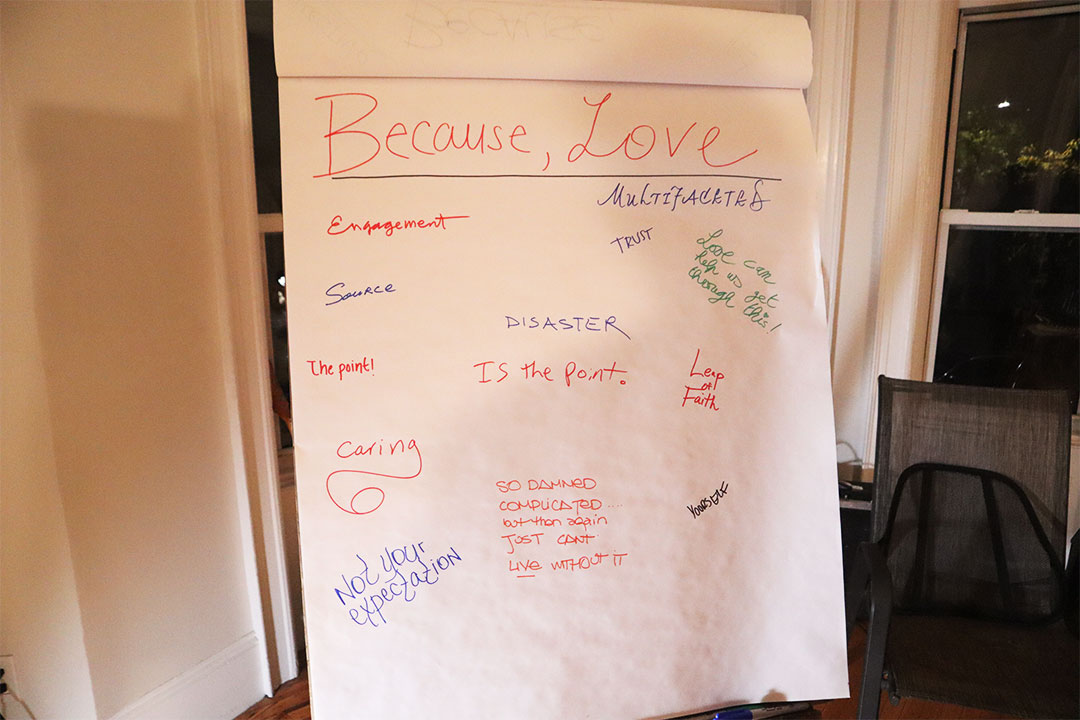 Because, Love
MULTIFACETED
Engagement
TRUST
Love can
help us get
through this!
Source
DISASTER
The point!
Is the point.
Leap
of
Faith
caring
SO DAMNED
COMPLICATED....
but then again
JUST CANT
LIVE WITHOUT IT
YOURSELF
Not your
expectation